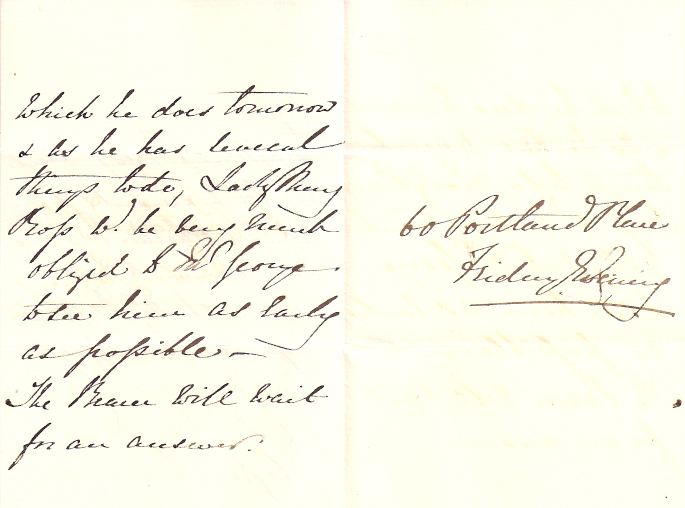 Which he does tomorrow
& as he has several
things to do, Lady Mary
Ross wd. be very much
obliged to Mr George
to see him as early
as possible –
The Bearer will wait
for an answer.
60 Portland Place
Friday Evening